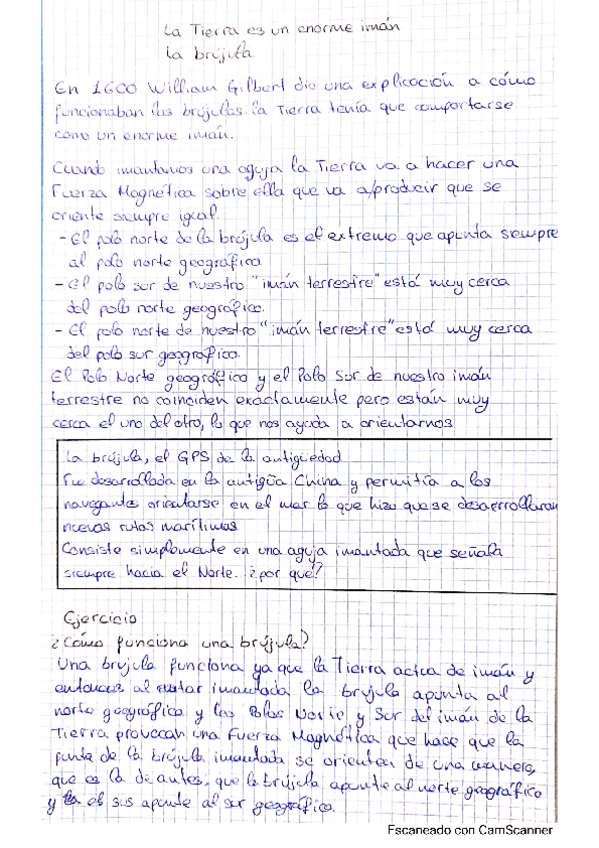 La Tierra es un enorme imán
La brújula
En 1600 William Gilbert dio una explicación a cómo
funcionaban las brújulas. La Tierra tenía que comportarse
como un enorme imán.
Cuando imantamos una aguja la Tierra va a hacer una
Fuerza Magnética sobre ella que va a producir que se
oriente siempre igual.
- El polo norte de la brújula es el extremo que apunta siempre
al polo norte geográfico.
- El polo sur de nuestro "imán terrestre" está muy cerca
del polo norte geográfico.
- El polo norte de nuestro "imán terrestre" está muy cerca
del polo sur geográfico.
El Polo Norte geográfico y el Polo Sur de nuestro imán
terrestre no coinciden exactamente pero están muy
cerca el uno del otro, lo que nos ayuda a orientarnos
La brújula, el GPS de la antigüedad
Fue desarrollada en la antigüa China y permitía a los
navegantes orientarse en el mar lo que hizo que se desarrollaran
nuevas rutas marítimas
Consiste simplemente en una aguja imantada que señala
siempre hacia el Norte. ¿por qué?
Ejercicio
¿Cómo funciona una brújula?
Una brújula funciona ya que la Tierra actua de imán y
entonces al estar imantada la brújula apunta al
norte geográfico y los Polos Norte y Sur del imán de la
Tierra provocan una Fuerza Magnética que hace que la
punta de la brújula imantada se orienten de una manera,
que es la de antes, que la brújula apunte al norte geográfico
y el sus apunte al sur geográfico.
Escaneado con CamScanner